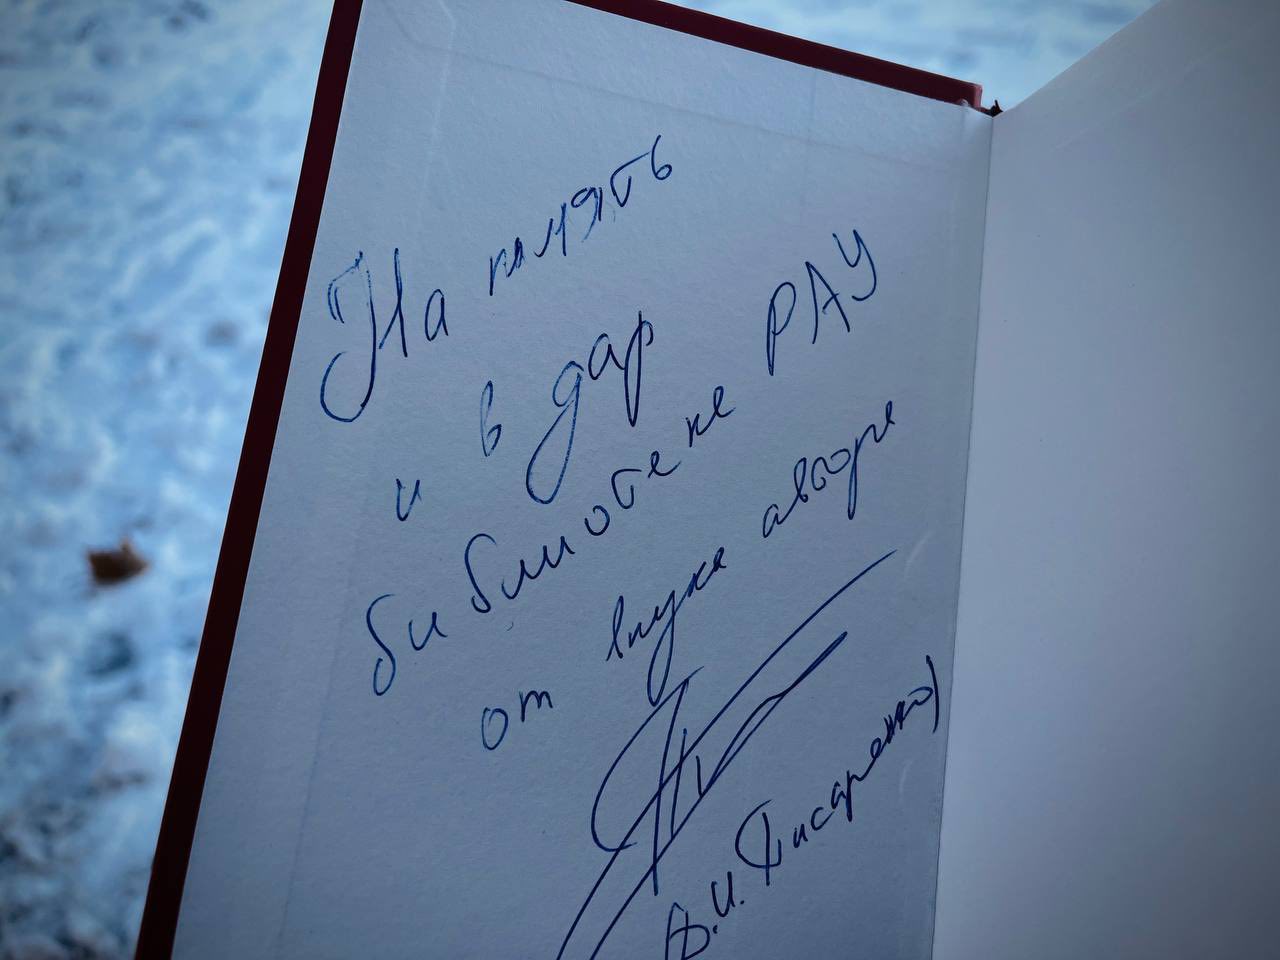 На память
и в дар
библиотеке РАУ
от внука автора
И. Писаренко)